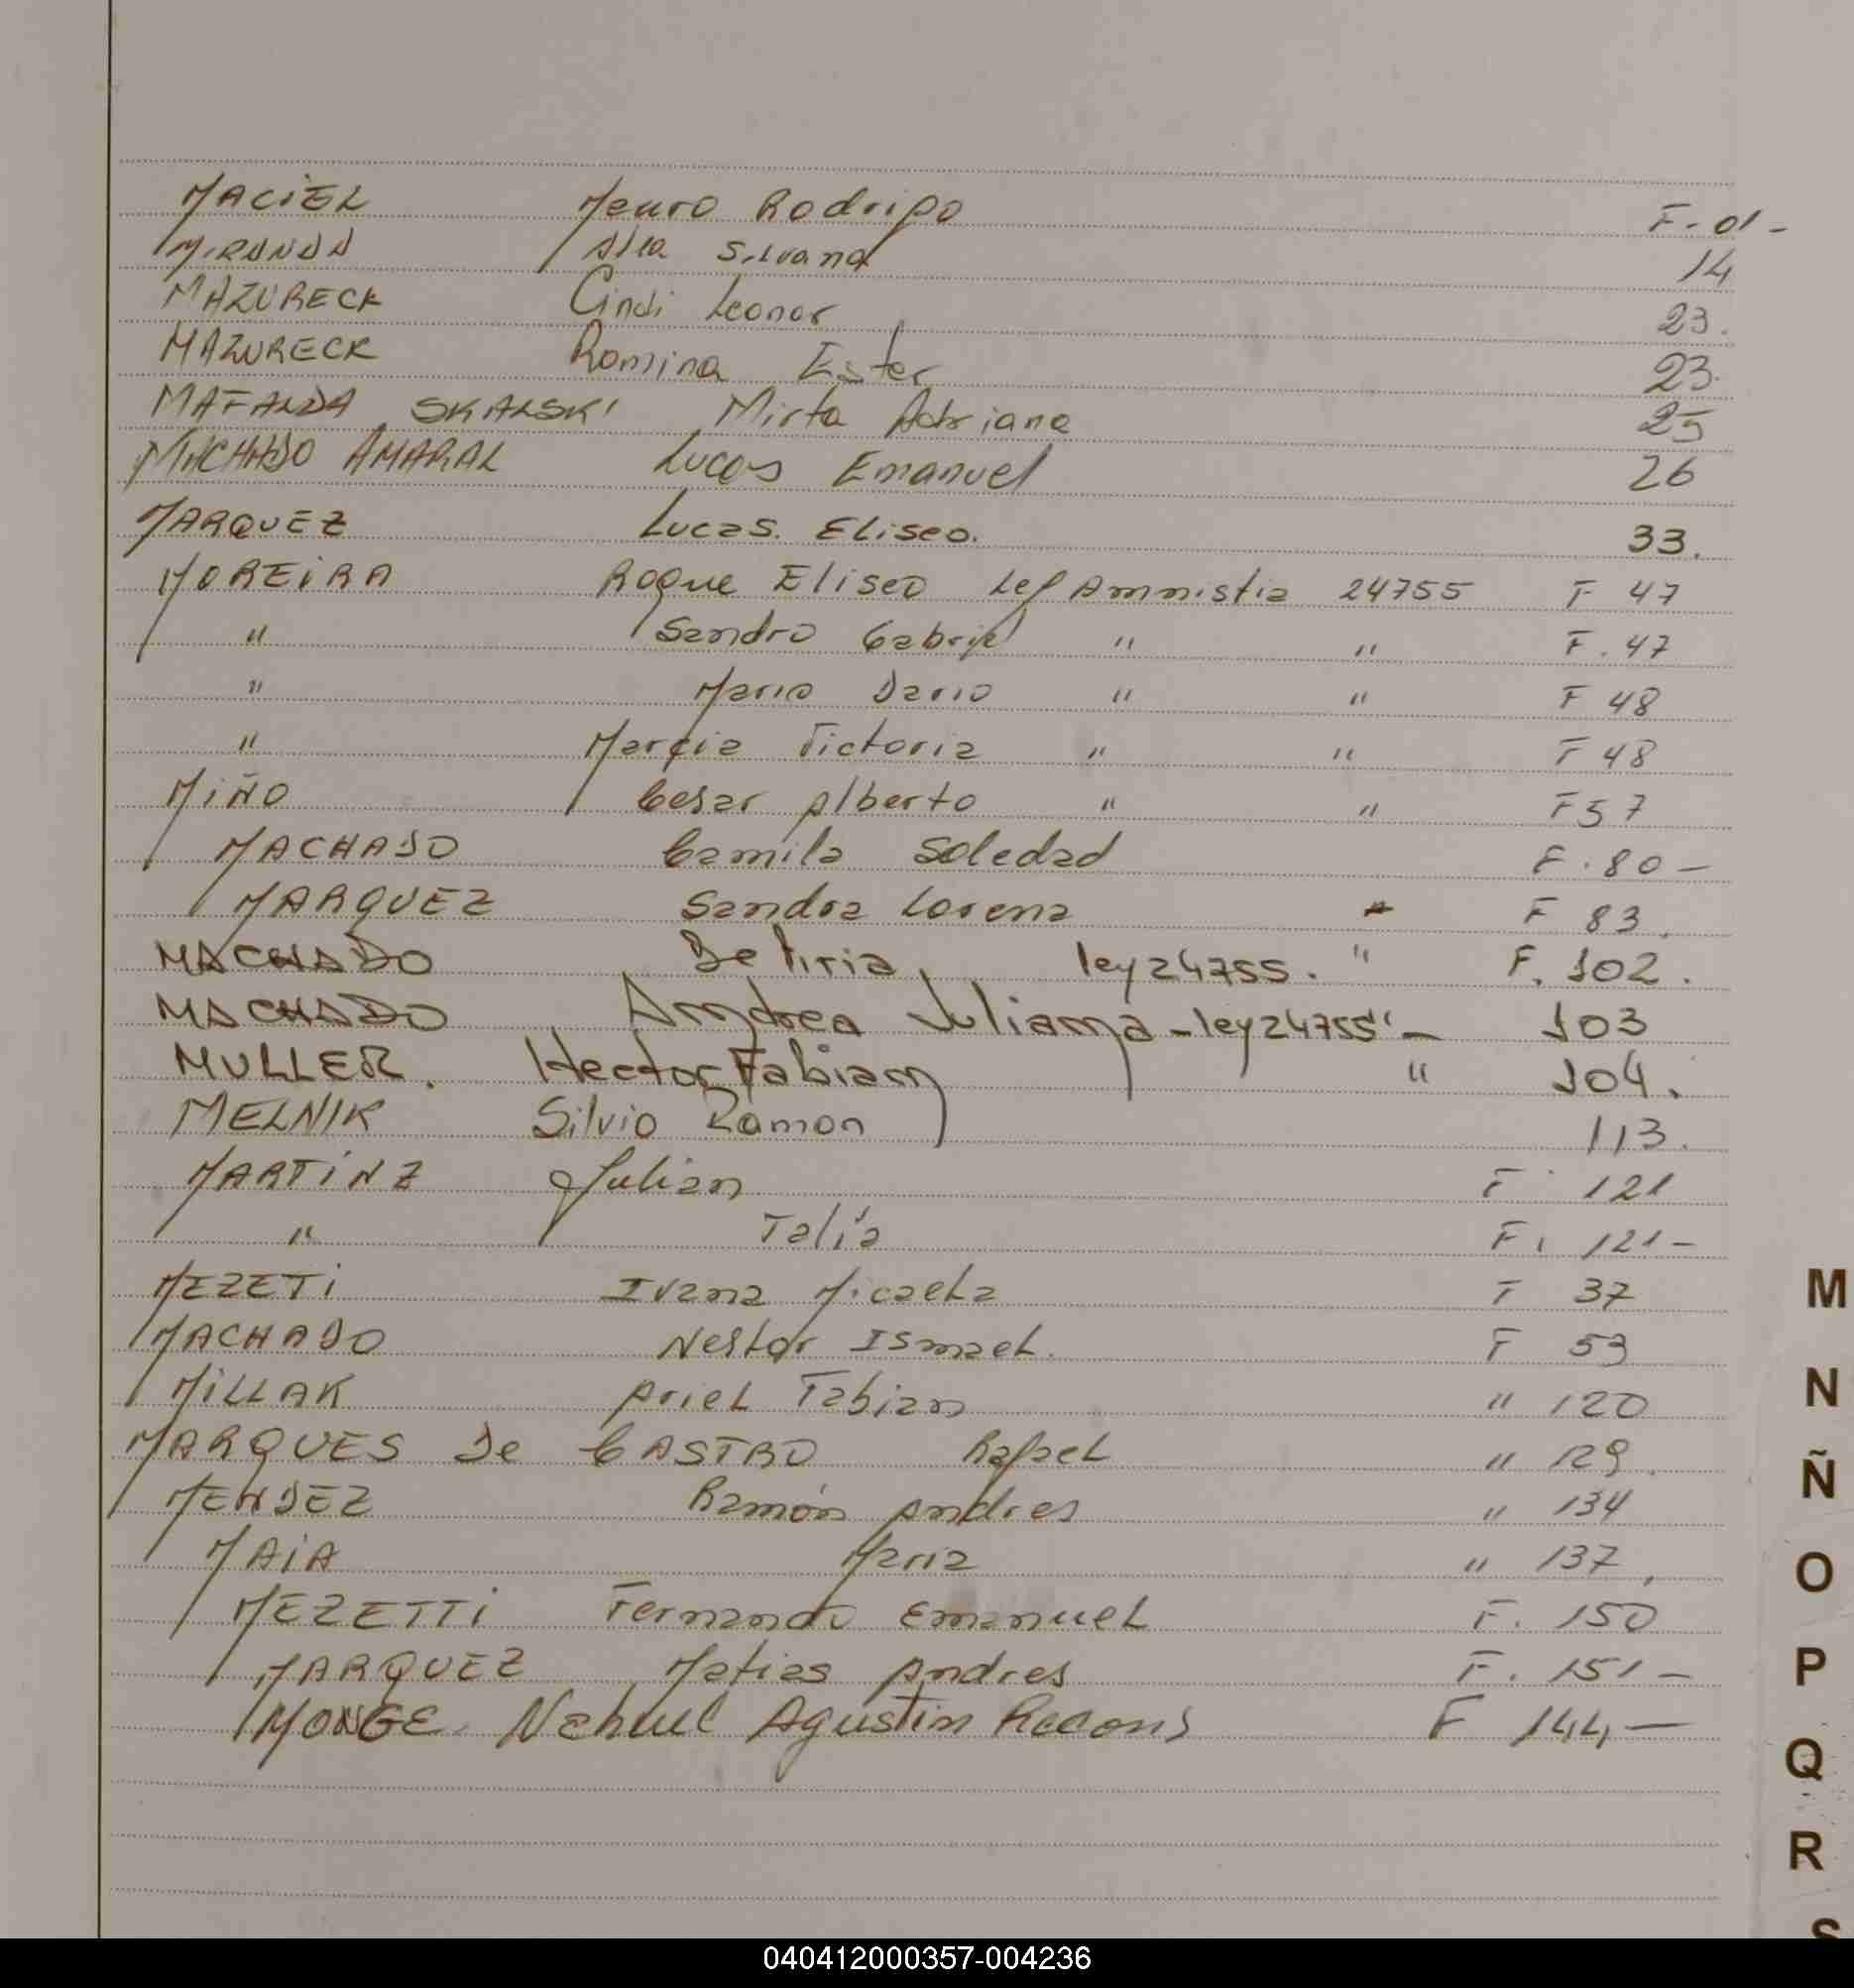 MACIEL Mauro Rodrigo F-01-
MIRANDA Silvana 14
MAZURECK Cindi Leonor 23.
MAZURECK Romina Ester 23.
MAFALDA SKALSKI Mirta Adriana 25
MACHADO AMARAL Lucas Emanuel 26
MARQUEZ Lucas. Eliseo. 33.
MOREIRA Roque Eliseo Ley Amnistia 24755 F 47
" Sandro Gabriel " " F. 47
" Mario Dario " " F 48
" Marcia Victoria " " F 48
MiÑO Cesar Alberto " " F 57
MACHADO Camila Soledad F. 80-
MARQUEZ Sandra Lorena F 83.
MACHADO ley 24755. " F. 102.
MACHADO Andrea Juliana - ley 24755 - 103
MULLER. Hector Fabian " 104.
MELNIK Silvio Ramon 113.
MARTINZ Julian F 121
" Talía F. 121-
MEZETi Ivana Micaela F 37
MACHADO Nestor Ismael. F 53
MiLLAK Ariel Fabian " 120
MARQUES De CASTRO Rafael " 129.
MENDEZ Ramón Andres " 134
MAiA Maria " 137.
MEZETTi Fernando Emanuel F. 150
MARQUEZ Matias Andres F. 151-
MONGE. Nahuel Agustin F 144-
M
N
Ñ
O
P
Q
R
S
040412000357-004236